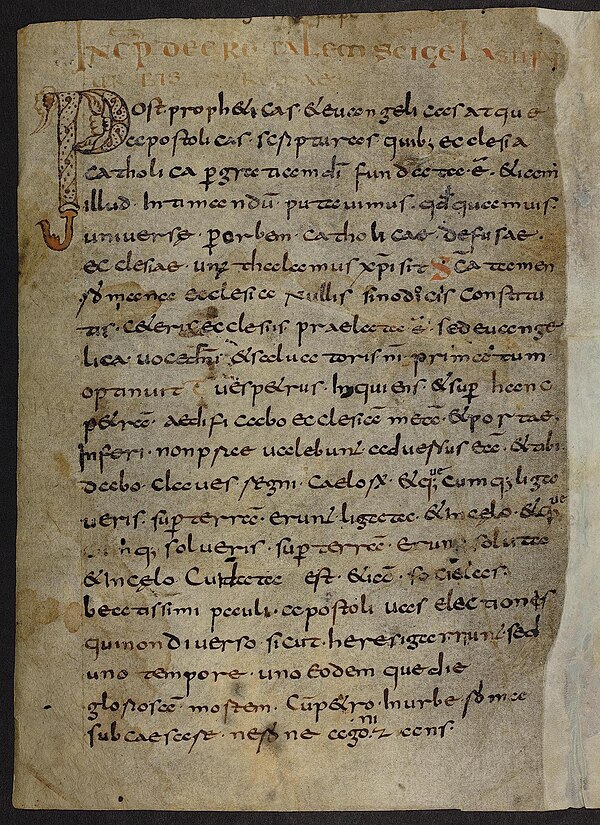 INCP DECRETALE SCI GELASII PP
URBIS ROMAE
Post propheticas & euangelicas atque
apostolicas scripturas quib; ecclesia
catholica p gratiam di fundata ē. & iam
illud. Intimandū putauimus. qđ quamuis.
uniuerse. p orbem catholicae defusae.
ecclesiae. unꝰ thalamus xp̄i sit Sc̄a tamen
romana ecclesia nullis sinodicis constitu
tis. Ceteris ecclesiis praelata ē. sed euange
lica uoce dn̄i & saluatoris n̄i primatum
optinuit tu es petrus. Inquiens & sup hanc
petrā. aedificabo ecclesiā meā. & portae
Inferi. non praeualebunt aduersus eā. & tibi
dabo. claues regni. Caelorum. & quecumq; liga
ueris. sup terrā. erunt ligata. & in celo. & que
cumq; solueris. sup terrā. erunt soluta
& in celo Cui data est. & iā. socię&as.
beatissimi pauli. apostoli uas electionis
qui non diuerso sicut. heresi garriunt sed
uno tempore. uno eodemque die
gloriosa. mortem. Cū p&ro. In urbe roma
sub caesare. nerone agoniz ans.